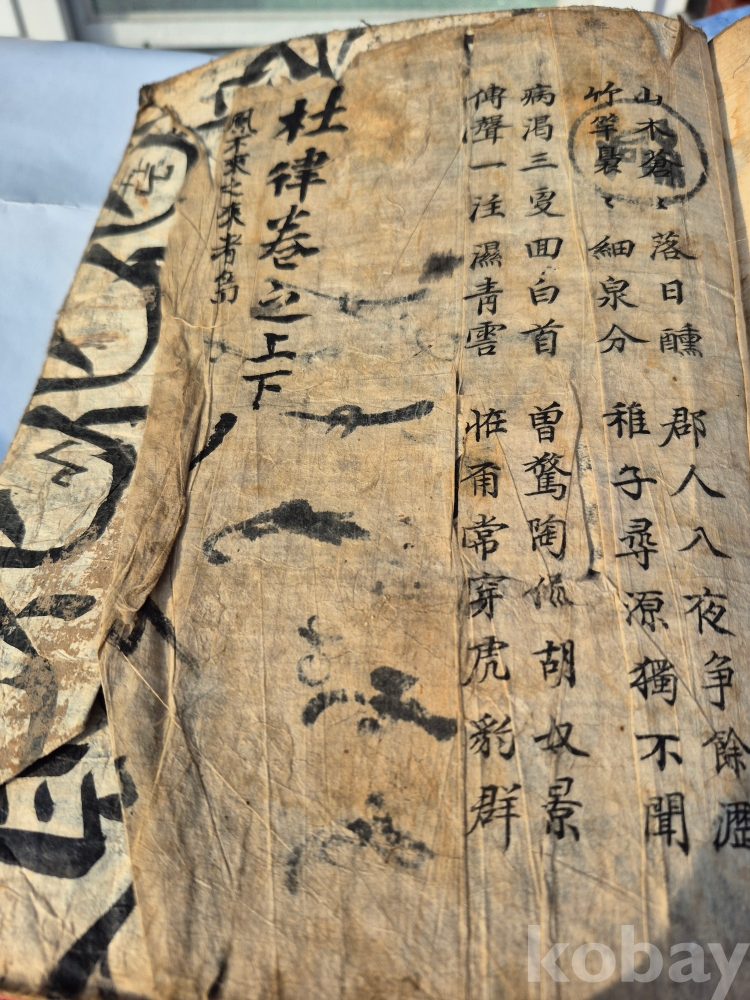 山木蒼〻落日醺 郡人入夜争餘瀝
竹竿裊〻細泉分 稚子尋源獨不聞
病渴三更回白首 曽驚陶侃胡奴景
傳聲一注濕青雲 恠常穿虎豹群
杜律卷之上下
不來之來者
kobay